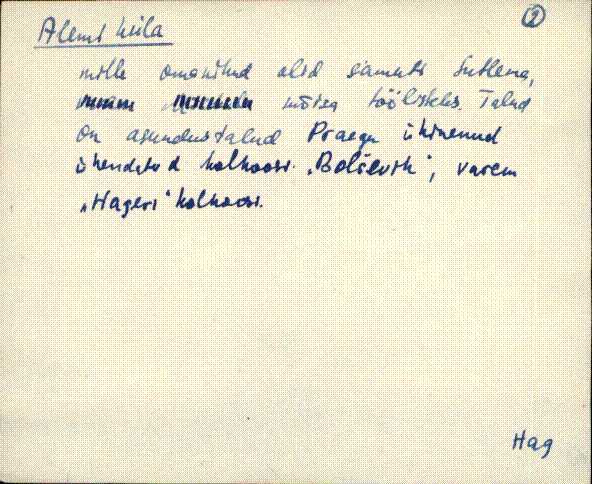 Alemi küla
2
mille omanikud olid samuti Sutlema,
mõisa töölisteks. Talud
on asundustalud Praegu ühinenud
ühendatud kolhoosi "Bolševik", varem
"Hageri" kolhoosi.
Hag